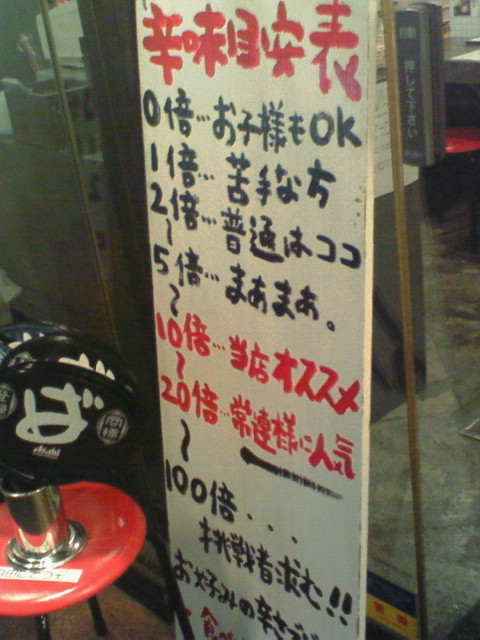 辛味目安表
0倍…お子様もOK
1倍…苦手な方
2倍…普通はココ
〜
5倍…まあまあ。
〜
10倍…当店オススメ
〜
20倍…常連様に人気
〜
100倍...
挑戦者求む!!
お好みの辛さで
食べ
自動
押して下さい
ば
Asahi